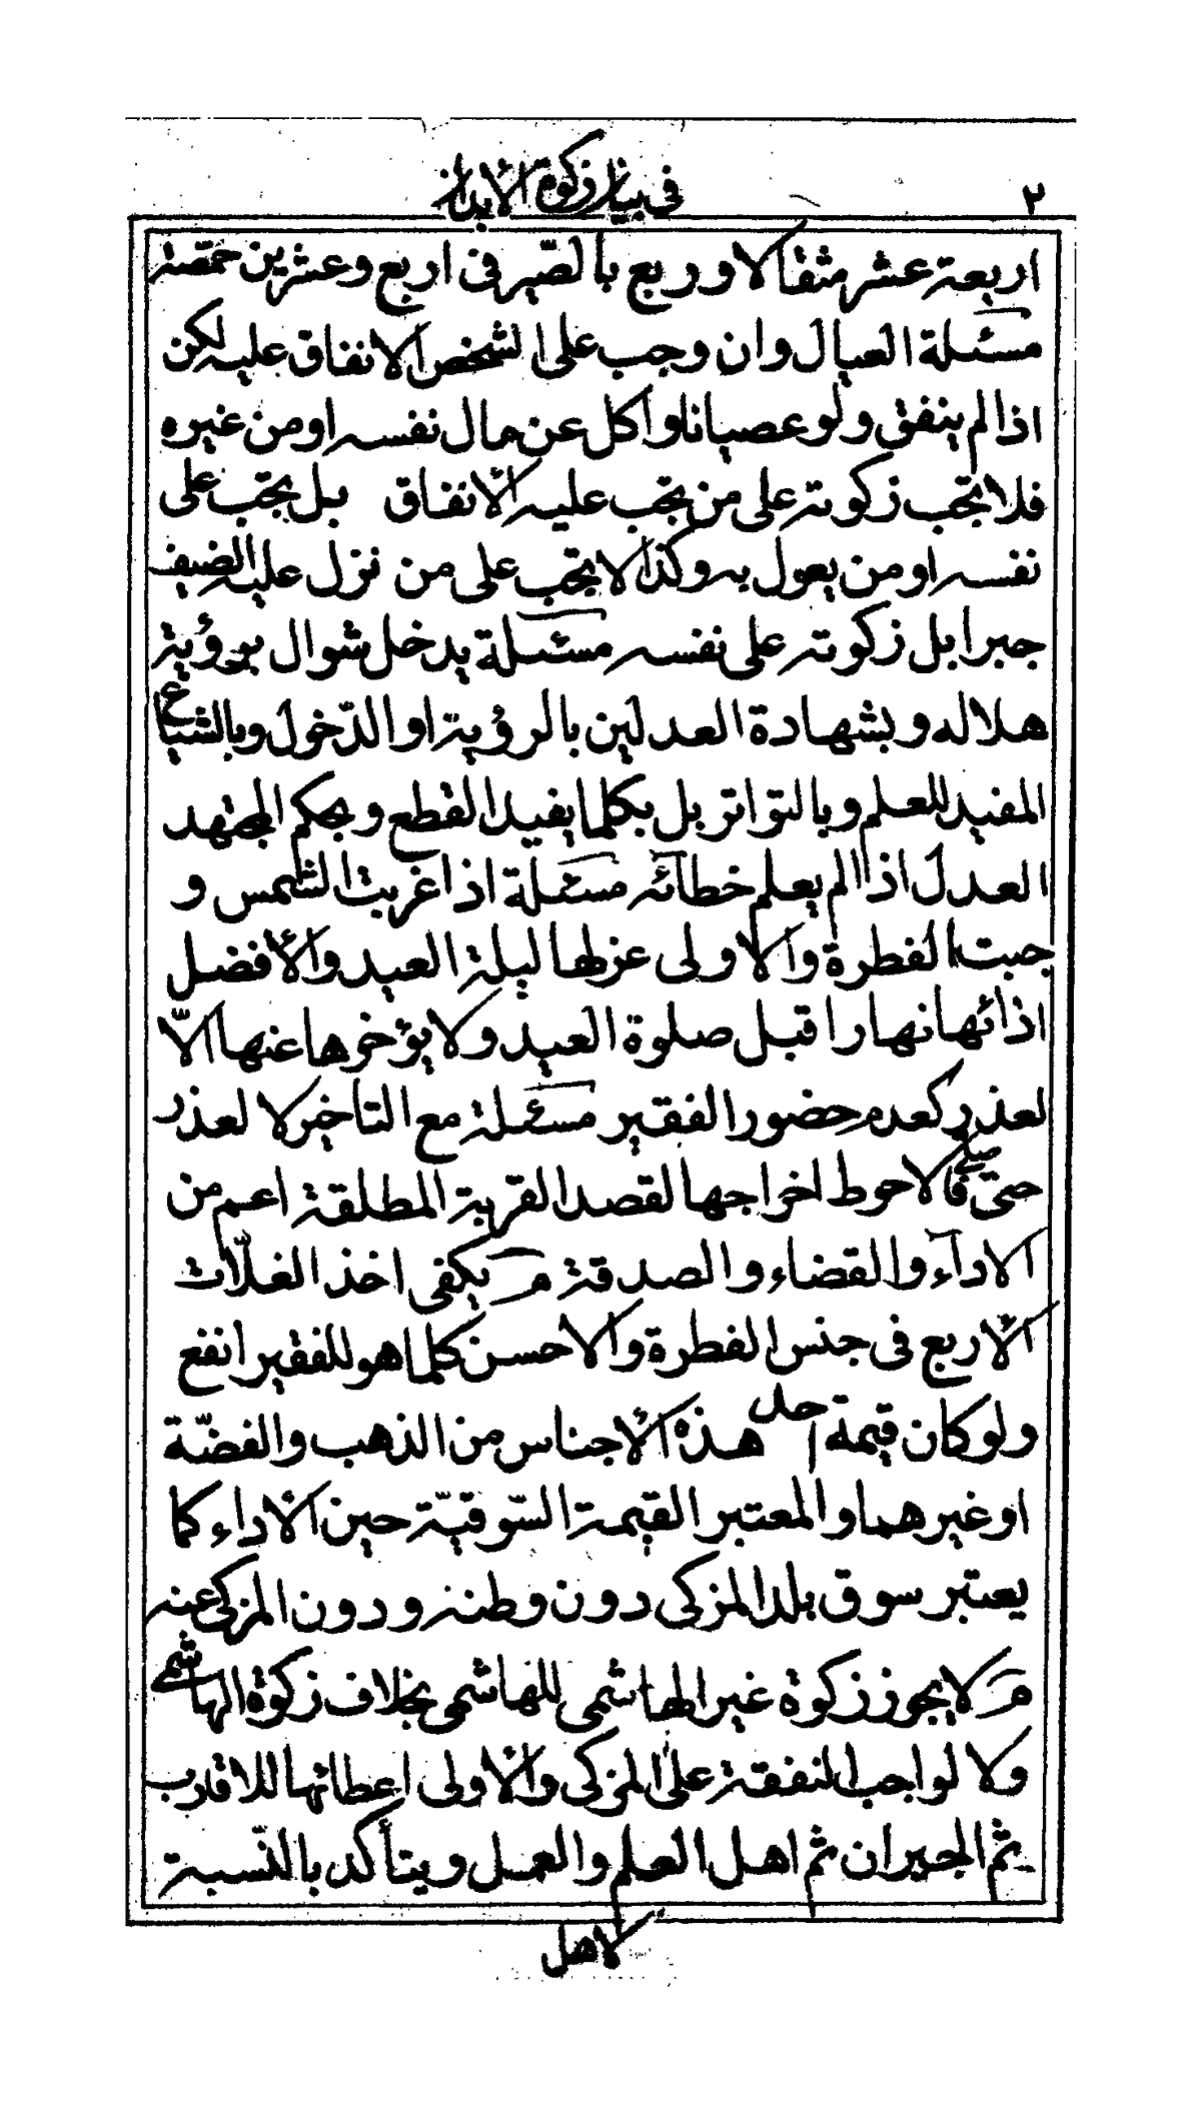 ٢
في بيان زكوة الأبدان
اربعة عشر مثقالا وربع بالصّير في اربع وعشرين حمّصة
مسئلة العيال وان وجب على الشخص الانفاق عليه لكن
اذا لم ينفق ولو عصيانا واكل عن مال نفسه او من غيره
فلا تجب زكوته على من تجب عليه الأنفاق بل تجب على
نفسه او من يعول به وكذا لا تجب على من نزل عليه الضيف
جبرا بل زكوته على نفسه مسئلة يدخل شوال برؤية
هلاله وبشهادة العدلين بالرؤية او الدّخول وبالشياع
المفيد للعلم وبالتواتر بل بكلما يفيد القطع وبحكم المجتهد
العدل اذا لم يعلم خطائه مسئلة اذا غربت الشمس و
جبت الفطرة والاولى عزلها ليلة العيد والأفضل
اذائها نهارا قبل صلوة العيد ولا يؤخرها عنها الّا
لعذر كعدم حضور الفقير مسئلة مع التاخير لا لعذر
حتى صلى فالاحوط اخراجها لقصد القربة المطلقة اعم من
الاداء والقضاء والصدقة مـ يكفى اخذ الغلّات
الأربع فى جنس الفطرة والاحسن كلما هو للفقير انفع
ولو كان قيمة احد هذه الأجناس من الذهب والفضّة
او غيرهما والمعتبر القيمة السّوقيّة حين الأداء كما
يعتبر سوق بلد المزكى دون وطنه ودون المزكى عنه
مـ لا يجوز زكوة غير الهاشمى للهاشمى بخلاف زكوة الهاشمى
ولا لواجب النفقة على المزكى والأولى اعطائها للاقارب
ثم الجيران ثم اهل العلم والعمل ويتأكد بالنّسبة
لاهل